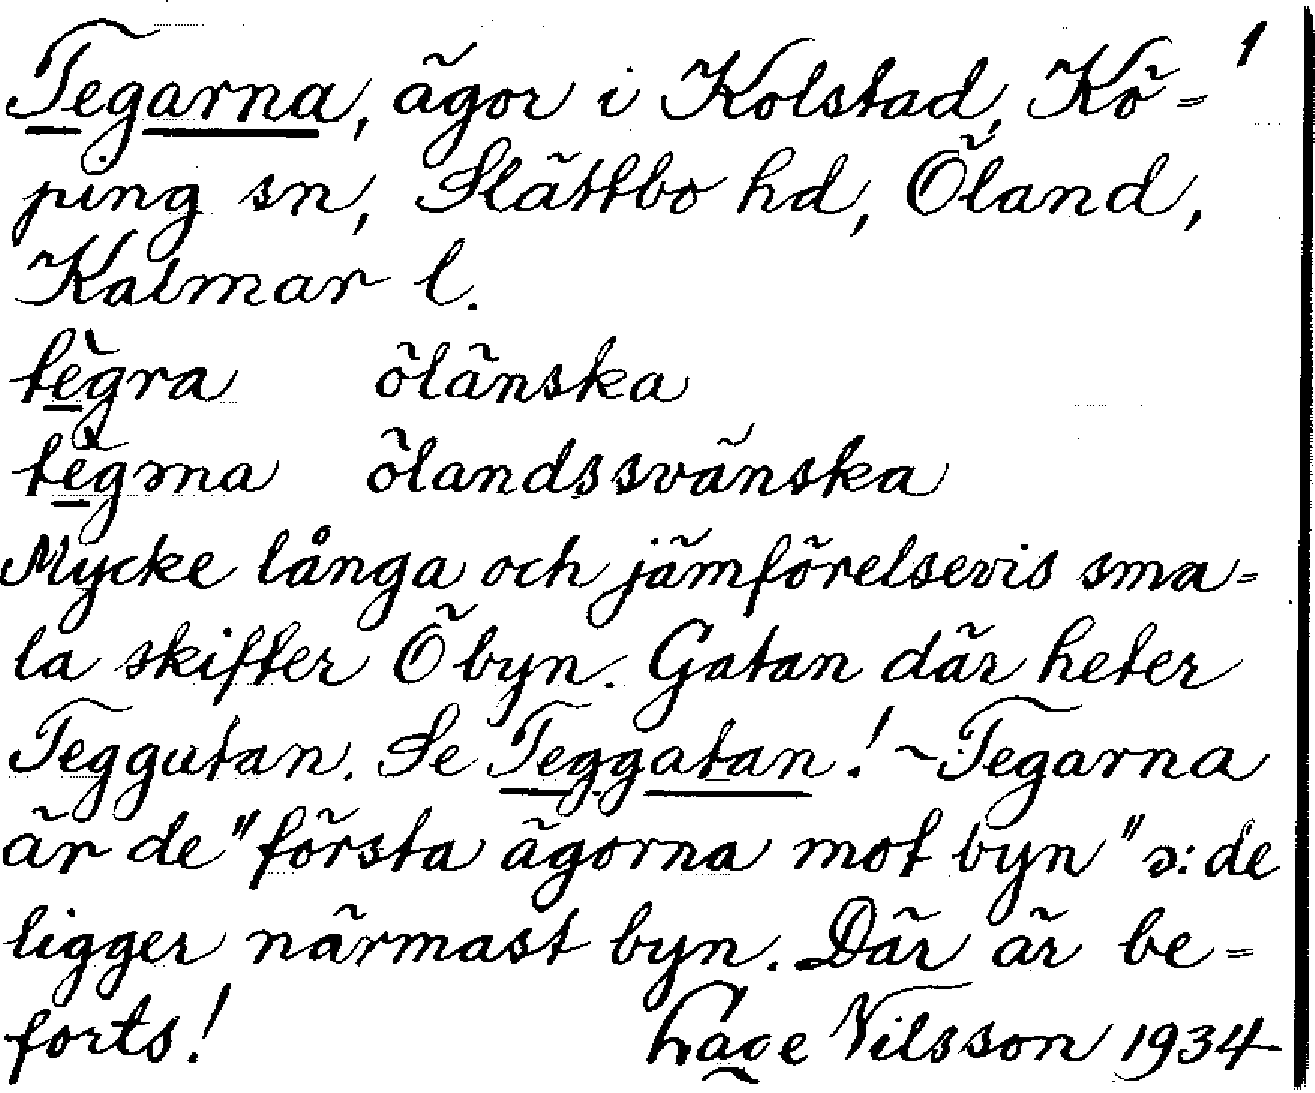 1
Tegarna, ägor i Kolstad, Kö=
ping sn, Slättbo hd, Öland,
Kalmar l.
tègra ölänska
tègəna ölandssvänska
Mycke långa och jämförelsevis sma=
la skifter Ö byn. Gatan där heter
Teggutan. Se Teggatan! ~Tegarna
är de "första ägorna mot byn" ɔ: de
ligger närmast byn. Där är be=
forts! Nilsson 1934